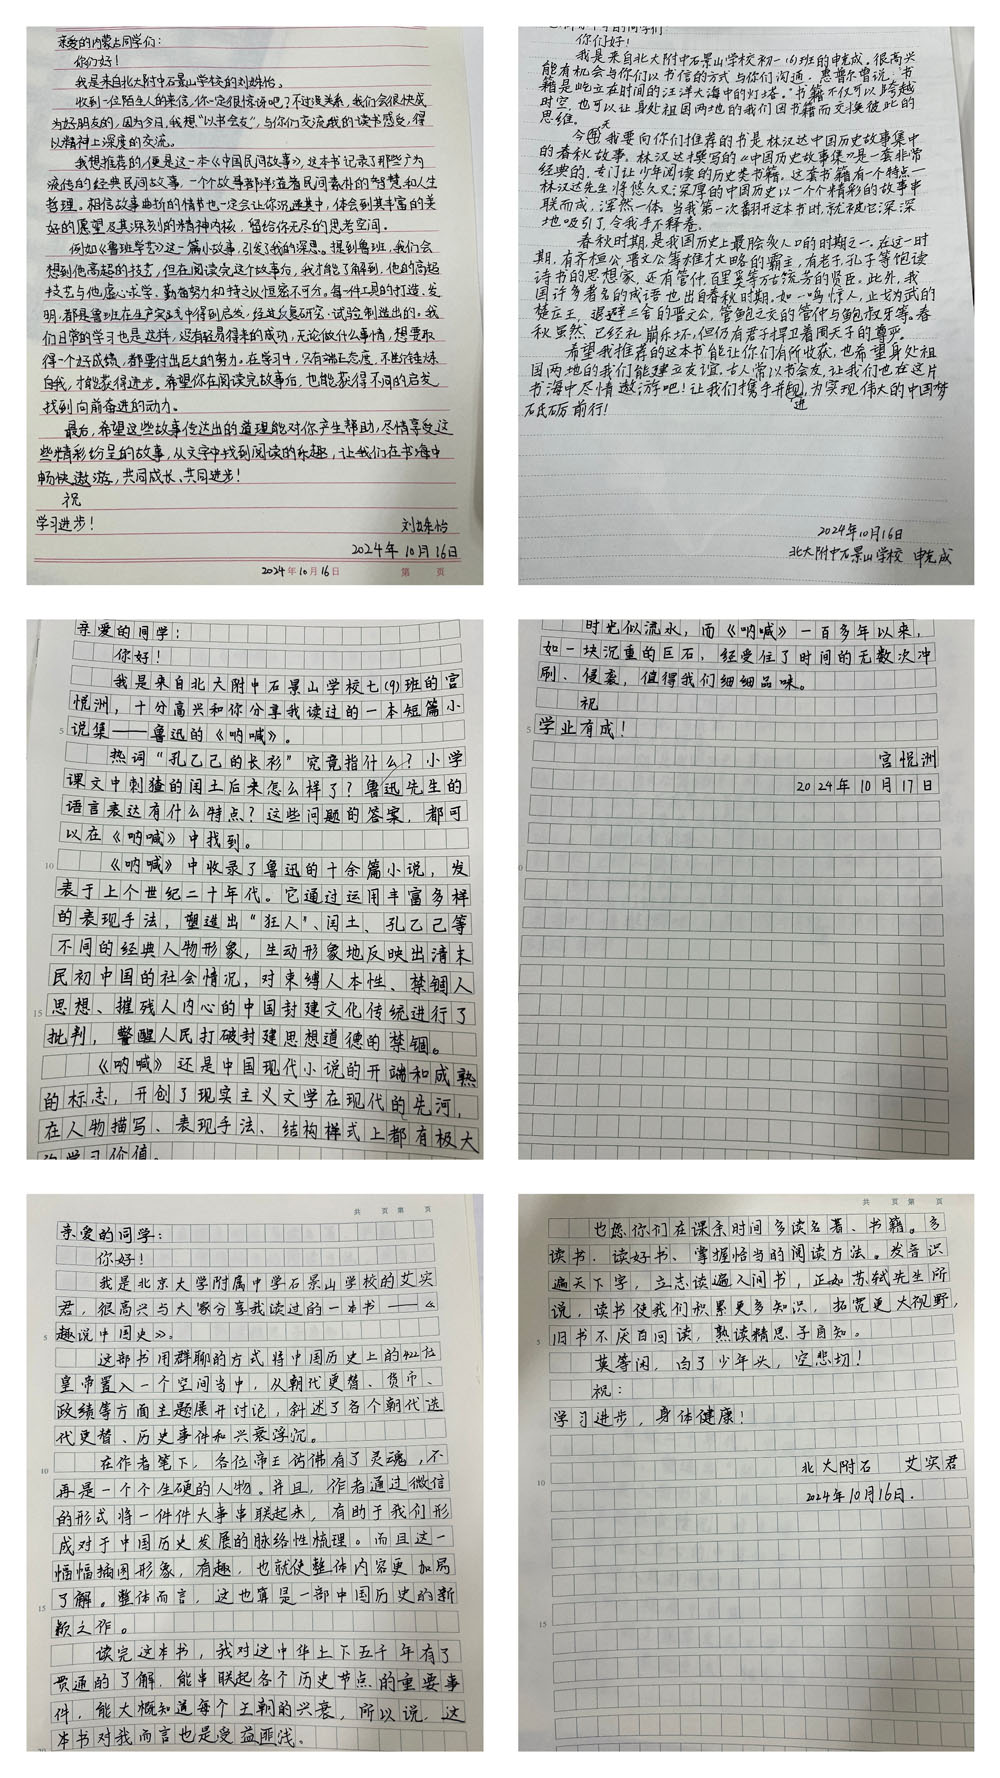 亲爱的内蒙古同学们：
你们好！
我是来自北大附中石景山学校的刘姝怡。
收到一位陌生人的来信，你一定很惊讶吧？不过没关系，我们会很快成
为好朋友的，因为今日，我想“以书会友”，与你们交流我的读书感受，得
以精神上深度的交流。
我想推荐的，便是这一本《中国民间故事》，这本书记录了那些广为
流传的经典民间故事，一个个故事都洋溢着民间素朴的智慧和人生
哲理。相信故事曲折的情节也一定会让你沉迷其中，体会到其丰富的美
好的愿望及其深刻的精神内核，留给你无尽的思考空间。
例如《鲁班学艺》这一篇小故事，引发了我的深思。提到鲁班，我们会
想到他高超的技艺，但在阅读完这个故事后，我才能了解到，他的高超
技艺与他虚心求学，勤奋努力和持之以恒密不可分。每一件工具的打造、发
明，都是鲁班在生产实践中得到启发，经过反复研究、试验制造出的。我
们日常的学习也是这样，没有轻易得来的成功，无论做什么事情，想要取
得一个好成绩，都要付出巨大的努力。在学习中，只有端正态度，不断锤炼
自我，才能获得进步。希望你在阅读完故事后，也能获得不同的启发
找到向前奋进的动力。
最后，希望这些故事传达出的道理能对你产生帮助，尽情享受这
些精彩纷呈的故事，从文字中找到阅读的乐趣，让我们在书海中
畅快遨游，共同成长、共同进步！
祝
学习进步！
刘姝怡
2024年10月16日
2024年10月16日 第 页
你们好！
我是来自北大附中石景山学校初一(6)班的申尧成。很高兴
能有机会与你们以书信的方式与你们沟通。惠普尔曾说，“书
籍是屹立在时间的汪洋大海中的灯塔。”书籍不仅可以跨越
时空，也可以让身处祖国两地的我们因书籍而交换彼此的
思维。
今天我要向你们推荐的书是林汉达中国历史故事集中
的春秋故事。林汉达撰写的《中国历史故事集》是一套非常
经典的，专门让少年阅读的历史类书籍。这套书籍有个特点—
林汉达先生将悠久又深厚的中国历史以一个个精彩的故事串
联而成，浑然一体。当我第一次翻开这本书时，就被它深深
地吸引了，令我手不释卷。
春秋时期，是我国历史上最脍炙人口的时期之一。在这一时
期，有齐桓公，晋文公等雄才大略的霸主，有老子，孔子等饱读
诗书的思想家，还有管仲，百里奚等万古流芳的贤臣。此外，我
国许多著名的成语也出自春秋时期，如一鸣惊人，止戈为武的
楚庄王，退避三舍的晋文公，管鲍之交的管仲与鲍叔牙等。春
秋虽然已经礼崩乐坏，但仍有君子捍卫着周天子的尊严。
希望我推荐的这本书能让你们有所收获，也希望身处祖
国两地的我们能建立友谊。古人常以书会友，让我们也在这片
书海中尽情遨游吧！让我们携手并进，为实现伟大的中国梦
砥砺前行！
2024年10月16日
北大附中石景山学校 申尧成
亲爱的同学：
你好！
我是来自北大附中石景山学校七(9)班的宫
悦洲，十分高兴和你分享我读过的一本短篇小
说集——鲁迅的《呐喊》。
热词“孔乙己的长衫”究竟指什么？小学
课文中刺猹的闰土后来怎么样了？鲁迅先生的
语言表达有什么特点？这些问题的答案，都可
以在《呐喊》中找到。
《呐喊》中收录了鲁迅的十余篇小说，发
表于上个世纪二十年代。它通过运用丰富多样
的表现手法，塑造出“狂人”、闰土、孔乙己等
不同的经典人物形象，生动形象地反映出清末
民初中国的社会情况，对束缚人本性、禁锢人
思想、摧残人内心的中国封建文化传统进行了
批判，警醒人民打破封建思想道德的禁锢。
《呐喊》还是中国现代小说的开端和成熟
的标志，开创了现实主义文学在现代的先河，
在人物描写、表现手法、结构样式上都有极大
的学习价值。
时光似流水，而《呐喊》一百多年以来，
如一块沉重的巨石，经受住了时间的无数次冲
刷、侵袭，值得我们细细品味。
祝
学业有成！
宫悦洲
2024年10月17日
共 页 第 页
亲爱的同学：
你好！
我是北京大学附属中学石景山学校的艾实
君，很高兴与大家分享我读过的一本书——《
趣说中国史》。
这部书用群聊的方式将中国历史上的422位
皇帝置入一个空间当中，从朝代更替、货币、
政绩等方面主题展开讨论，斜述了各个朝代迭
代更替、历史事件和兴衰浮沉。
在作者笔下，各位帝王仿佛有了灵魂，不
再是一个个生硬的人物。并且，作者通过微信
的形式将一件件大事串联起来，有助于我们形
成对于中国历史发展的脉络性梳理。而且这一
幅幅插图形象，有趣，也就使整体内容更加易
了解。整体而言，这也算是一部中国历史的新
颖之作。
读完这本书，我对这中华上下五千年有了
贯通的了解，能串联起各个历史节点的重要事
件，能大概知道每个王朝的兴衰，所以说，这
本书对我而言也是受益匪浅。
共 页 第 页
也愿你们在课余时间多读名著、书籍。多
读书，读好书、掌握恰当的阅读方法。发奋识
遍天下字，立志读遍人间书，正如苏轼先生所
说，读书使我们积累更多知识，拓宽更大视野，
旧书不厌百回读，熟读精思子自知。
莫等闲，白了少年头，空悲切！
祝：
学习进步，身体健康！
北大附石 艾实君
2024年10月16日.